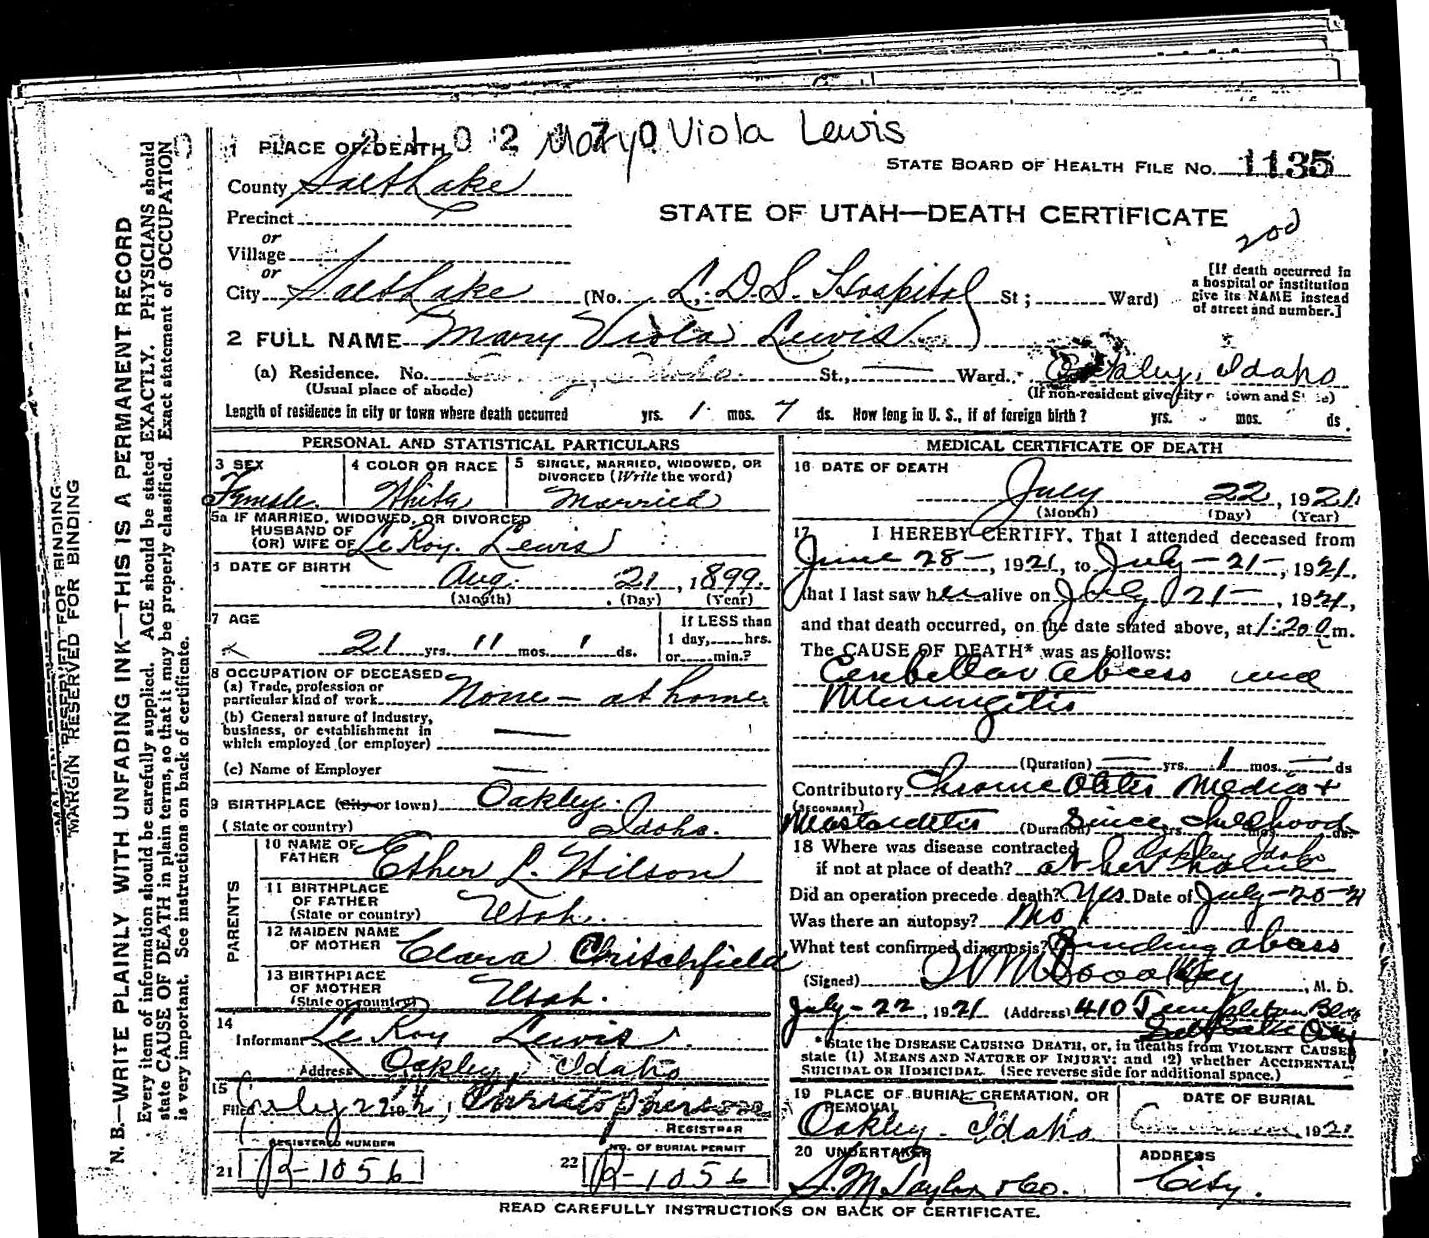 Mary Viola Lewis
1 PLACE OF DEATH
STATE BOARD OF HEALTH FILE NO. 1135
County Salt Lake
Precinct
STATE OF UTAH—DEATH CERTIFICATE
2nd
or
Village
or
City Salt Lake (No. L. D. S. Hospital St; Ward)
[If death occurred in
a hospital or institution
give its NAME instead
of street and number.]
2 FULL NAME Mary Viola Lewis
(a) Residence. No. St., Ward. Oakley, Idaho
(Usual place of abode) (If non-resident give city or town and State)
Length of residence in city or town where death occurred yrs. 1 mos. 7 ds. How long in U. S., if of foreign birth? yrs. mos. ds.
PERSONAL AND STATISTICAL PARTICULARS
3 SEX
Female
4 COLOR OR RACE
White
5 SINGLE, MARRIED, WIDOWED, OR
DIVORCED (Write the word)
Married
5a IF MARRIED, WIDOWED, OR DIVORCED
HUSBAND OF
(OR) WIFE OF LeRoy Lewis
6 DATE OF BIRTH
Aug. 21, 1899.
(Month) (Day) (Year)
7 AGE
21 yrs. 11 mos. 1 ds.
If LESS than
1 day, hrs.
or min.?
8 OCCUPATION OF DECEASED
(a) Trade, profession or
particular kind of work None - at home
(b) General nature of Industry,
business, or establishment in
which employed (or employer)
(c) Name of Employer
9 BIRTHPLACE (City or town) Oakley.
(State or country) Idaho.
PARENTS
10 NAME OF
FATHER Esther L. Wilson
11 BIRTHPLACE
OF FATHER
(State or country) Utah.
12 MAIDEN NAME
OF MOTHER Clara Chritchfield
13 BIRTHPLACE
OF MOTHER
(State or country) Utah.
14
Informant LeRoy Lewis
Address Oakley, Idaho
15
Filed July 22
REGISTRAR
REGISTERED NUMBER
21 R-1056
NO. OF BURIAL PERMIT
22 R-1056
MEDICAL CERTIFICATE OF DEATH
16 DATE OF DEATH
July 22, 1921
(Month) (Day) (Year)
17 I HEREBY CERTIFY, That I attended deceased from
June 28-, 1921, to July-21-, 1921,
that I last saw her alive on July 21-, 1921,
and that death occurred, on the date stated above, at 1:20 m.
The CAUSE OF DEATH* was as follows:
Cerebellar abcess and
Meningitis
(Duration) yrs. 1 mos. ds
Contributory Chronic Otitis Media +
(SECONDARY)
Mastoiditis (Duration) Since Childhood
18 Where was disease contracted Oakley Idaho
if not at place of death? at her home
Did an operation precede death? Yes Date of July-20-21
Was there an autopsy? No
What test confirmed diagnosis? Finding abcess
(Signed) M. D.
July-22, 1921 (Address) 410 Templeton Bldg
Salt Lake City
*State the DISEASE CAUSING DEATH, or, in deaths from VIOLENT CAUSES
state (1) MEANS AND NATURE OF INJURY; and (2) whether ACCIDENTAL,
SUICIDAL or HOMICIDAL. (See reverse side for additional space.)
19 PLACE OF BURIAL CREMATION, OR
REMOVAL
Oakley. Idaho
DATE OF BURIAL
1921
20 UNDERTAKER
S. M. Taylor & Co.
ADDRESS
City.
READ CAREFULLY INSTRUCTIONS ON BACK OF CERTIFICATE.
MARGIN RESERVED FOR BINDING
MARGIN RESERVED FOR BINDING
N. B.—WRITE PLAINLY WITH UNFADING INK—THIS IS A PERMANENT RECORD
Every item of information should be carefully supplied. AGE should be stated EXACTLY. PHYSICIANS should
state CAUSE OF DEATH in plain terms, so that it may be properly classified. Exact statement of OCCUPATION
is very important. See instructions on back of certificate.